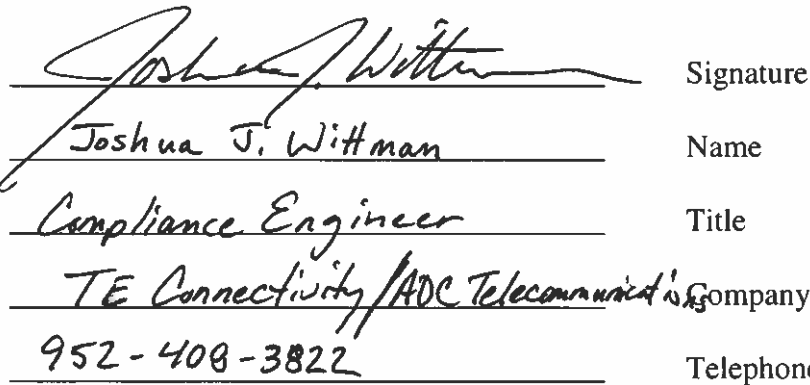 Joshua J. Wittman Signature
Joshua J. Wittman Name
Compliance Engineer Title
TE Connectivity/ADC Telecommunications Company
952-408-3822 Telephon